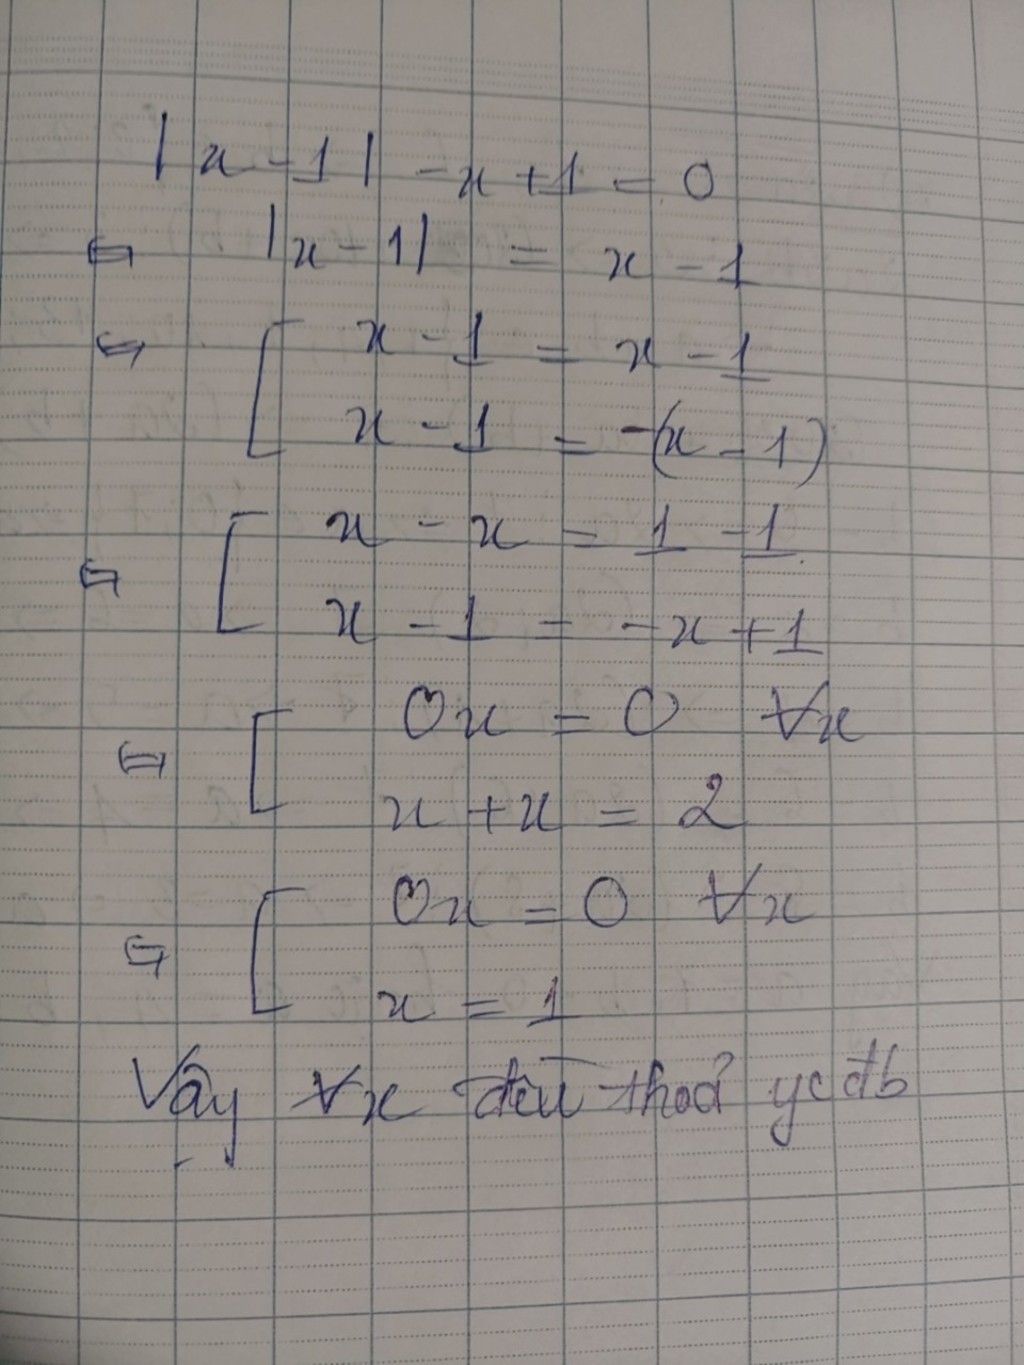 |x - 1| - x + 1 = 0
⇔ |x - 1| = x - 1
⇔ [ x - 1 = x - 1
x - 1 = -(x - 1)
⇔ [ x - x = 1 - 1
x - 1 = -x + 1
⇔ [ 0x = 0 ∀x
x + x = 2
⇔ [ 0x = 0 ∀x
x = 1
Vậy ∀x đều thoả ycđb